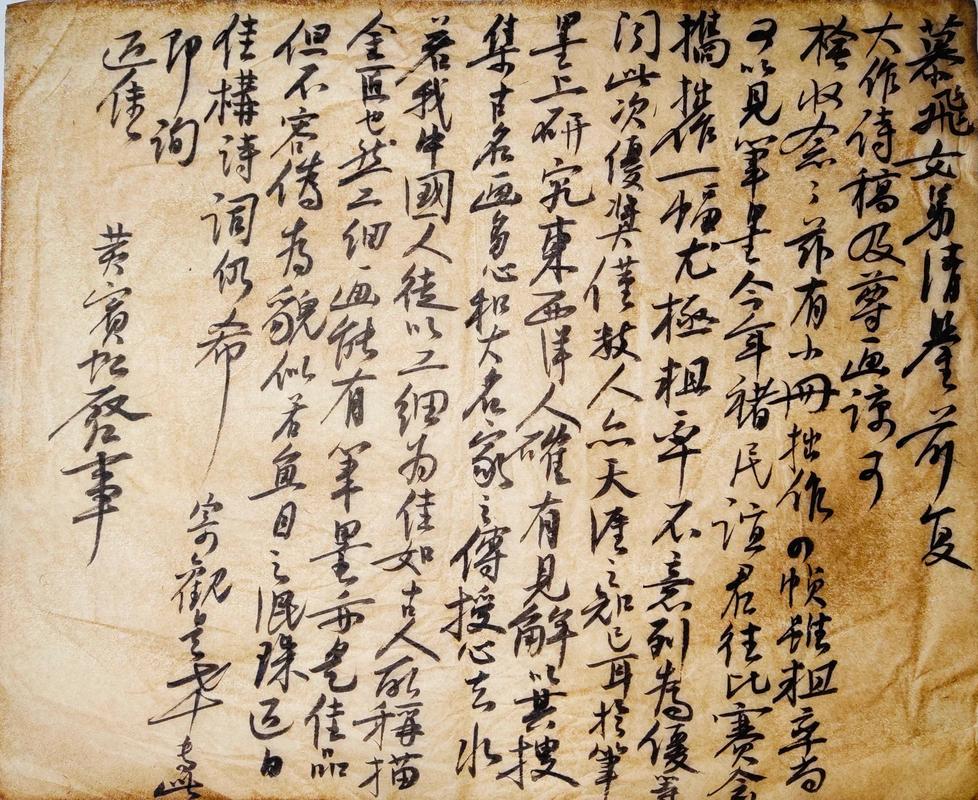 慕飛女弟清鑒前复
大作詩稿及尊画諒可
檢收念念茲有小冊拙作四幀雖粗率尚
可以見筆走今年褚民誼君往比賽會
攜拙作一幅尤極粗率不意列為優等
閱此次優奬僅數人亦天涯之知己耳於筆
墨上研究東西洋人確有見解以其搜
集古名画多心和大名家之傳授心去水
若我中國人徒以工細为佳如古人所稱描
金匠也然工細画能有筆墨亦是佳品
但不容偽为貌似若魚目之混珠近日
佳構詩詞仍希
寄觀是幸专此
即詢
近佳
黃賓虹啟事